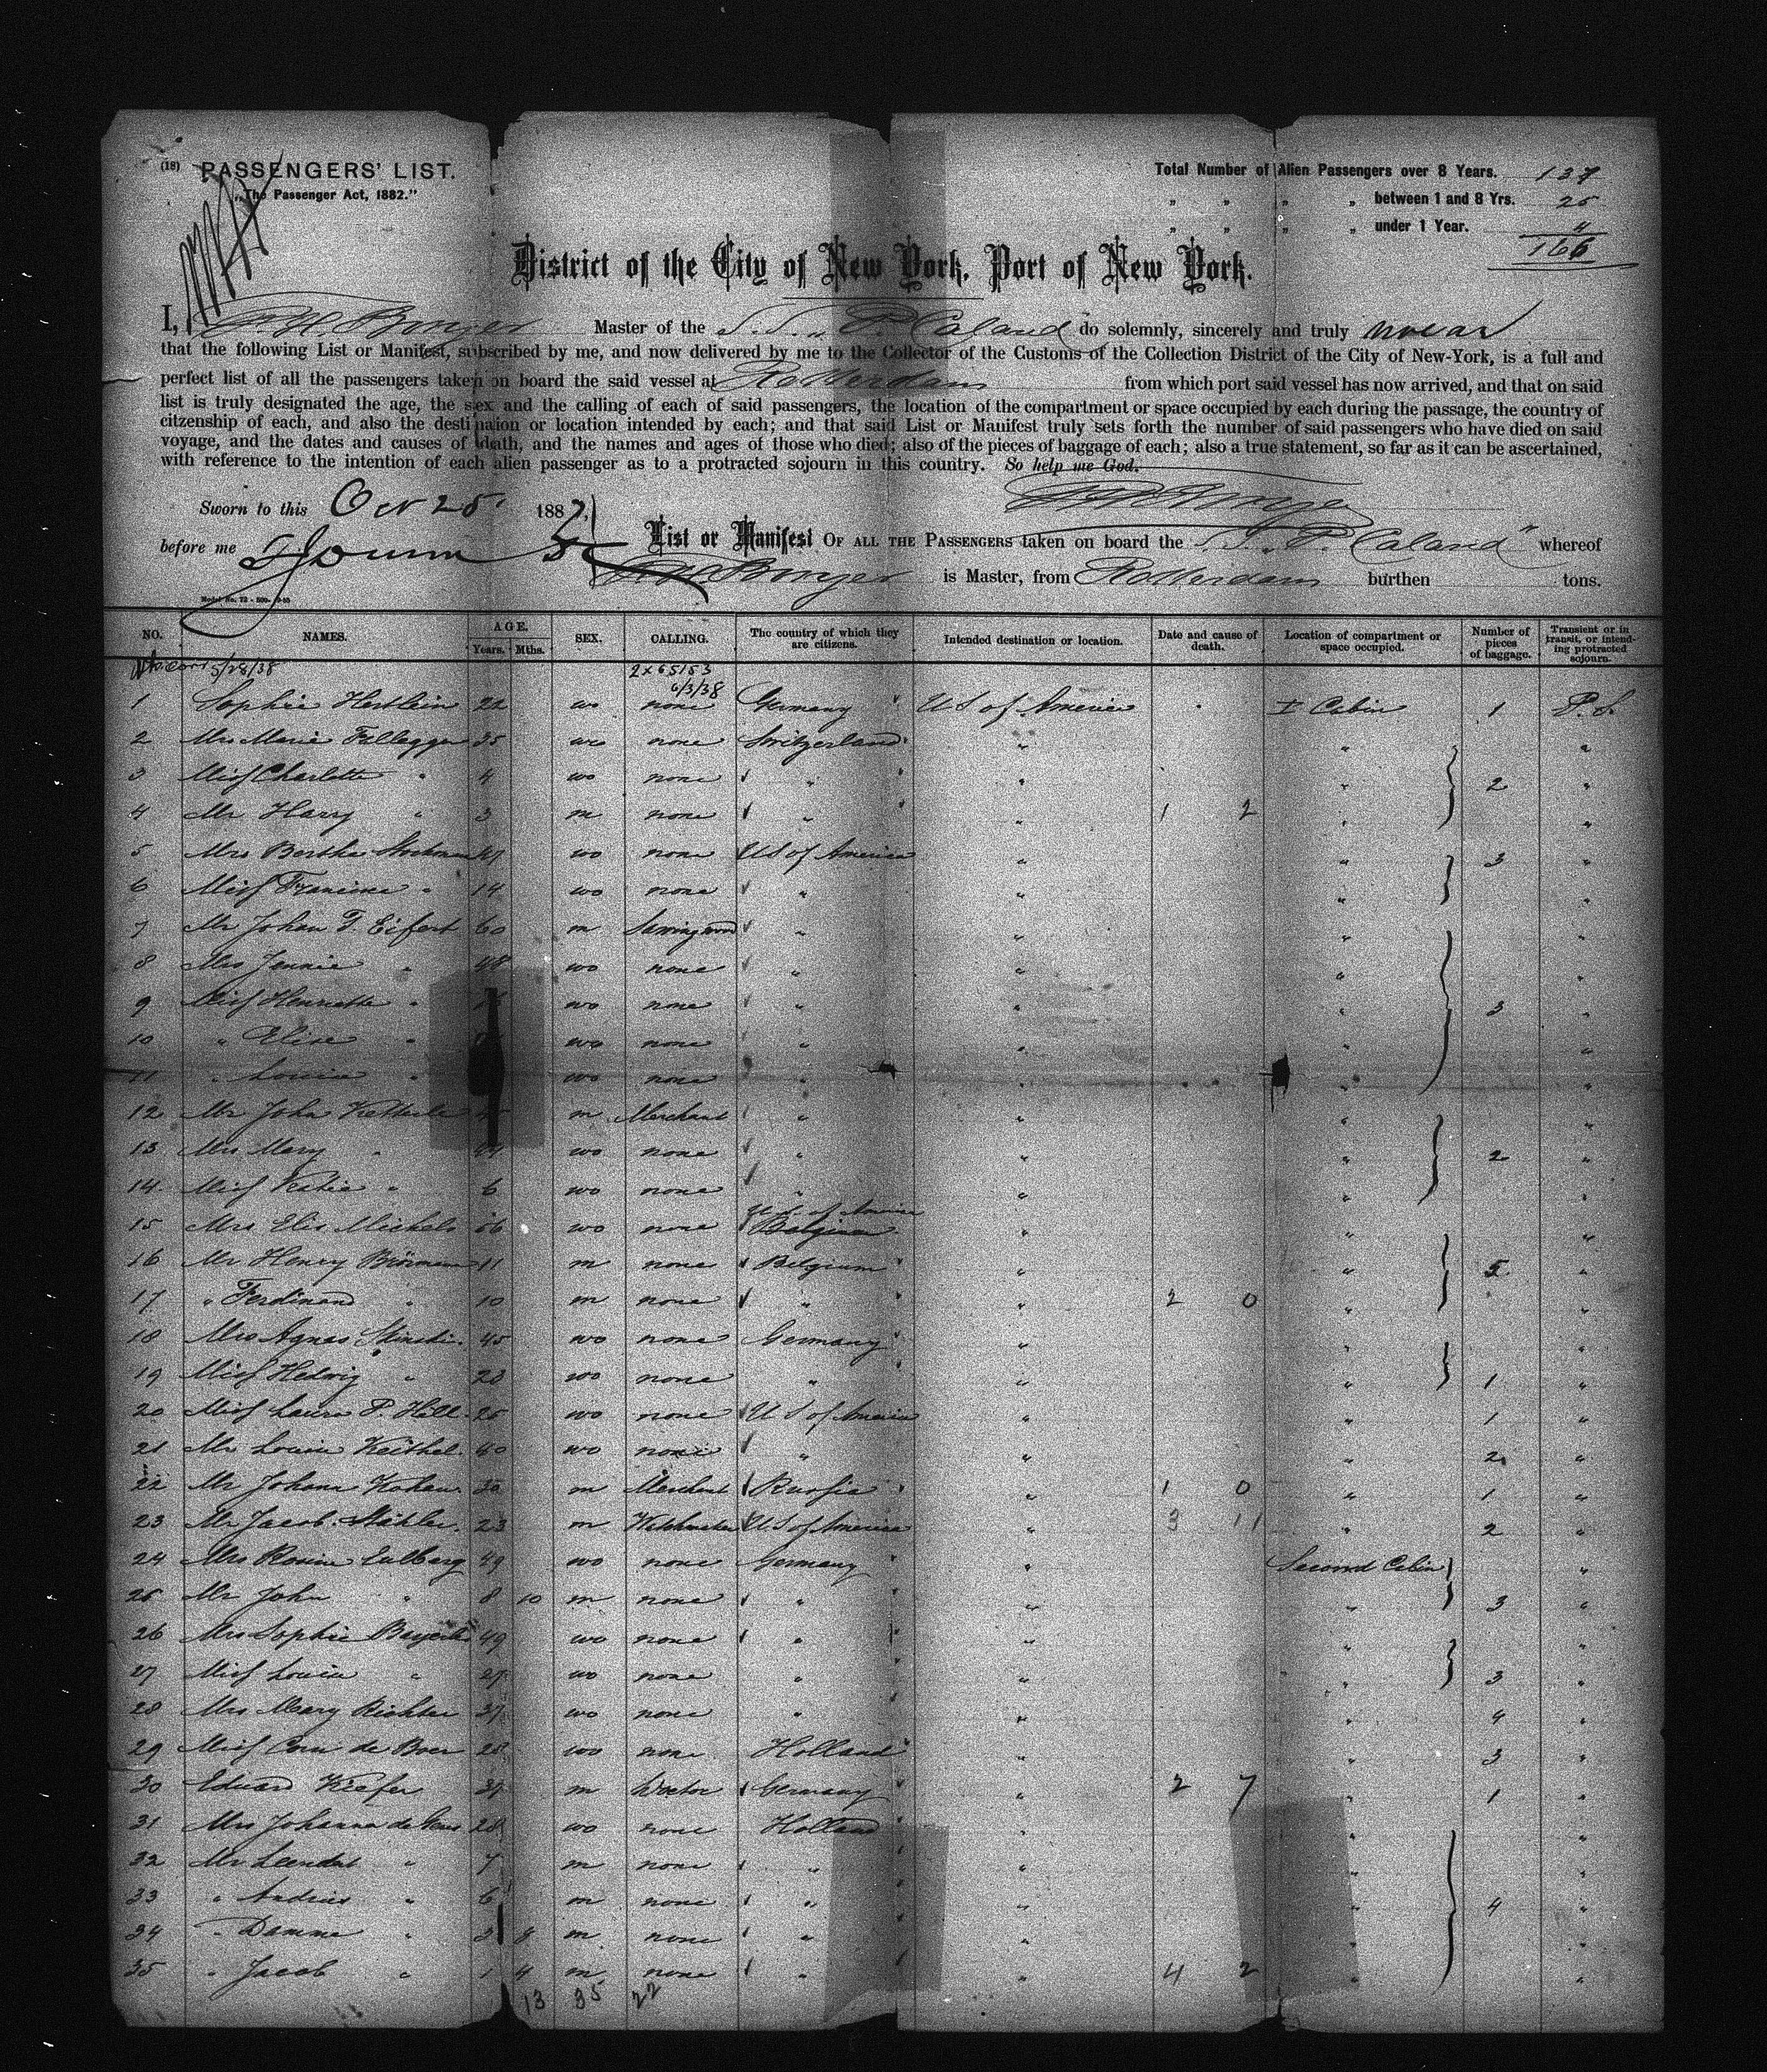 (18) PASSENGERS' LIST.
"The Passenger Act, 1882."
Total Number of Alien Passengers over 8 Years. 137
„ „ „ „ between 1 and 8 Yrs. 25
„ „ „ „ under 1 Year. 4
166
District of the City of New York, Port of New York.
I, Bonjer Master of the S.S. „P. Caland" do solemnly, sincerely and truly swear
that the following List or Manifest, subscribed by me, and now delivered by me to the Collector of the Customs of the Collection District of the City of New-York, is a full and
perfect list of all the passengers taken on board the said vessel at Rotterdam from which port said vessel has now arrived, and that on said
list is truly designated the age, the sex and the calling of each of said passengers, the location of the compartment or space occupied by each during the passage, the country of
citzenship of each, and also the destination or location intended by each; and that said List or Manifest truly sets forth the number of said passengers who have died on said
voyage, and the dates and causes of death, and the names and ages of those who died; also of the pieces of baggage of each; also a true statement, so far as it can be ascertained,
with reference to the intention of each alien passenger as to a protracted sojourn in this country. So help me God.
Bonjer
Sworn to this Oct 25 1887,
before me
List or Manifest OF ALL THE PASSENGERS taken on board the S.S. „P. Caland" whereof
Bonjer is Master, from Rotterdam burthen tons.
NO. NAMES. AGE. Years. Mths. SEX. CALLING. The country of which they are citizens. Intended destination or location. Date and cause of death. Location of compartment or space occupied. Number of pieces of baggage. Transient or in transit, or intending protracted sojourn.
5/28/38 2x65153
6/3/38
1 Sophie Hertlein 22 wo none Germany U S of America I Cabin 1 P.S.
2 Mrs Marie 35 wo none Switzerland „ „ „
3 Miss Charlotte „ 4 wo none „ „ „ 2 „
4 Mr Harry „ 3 m none „ „ 1 2 „ „
5 Mrs Bertha wo none US of America „ „ 3 „
6 Miss „ 14 wo none „ „ „ „
7 Mr Johan F. Eifert 60 m „ „ „
8 Mrs Jennie „ 48 wo none „ „ „ „
9 Miss Henriette „ wo none „ „ „ 3 „
10 „ Elise „ wo none „ „ „ „
11 „ Louise „ wo none „ „ „ „
12 Mr John Ketterle m Merchant „ „ „ „
13 Mrs Mary „ 44 wo none „ „ „ 2 „
14 Miss Katie „ 6 wo none „ „ „ „
15 Mrs Elis. Michels 56 wo none U.S. of America Belgium „ „ „
16 Mr Henry 11 m none Belgium „ „ 5 „
17 „ Ferdinand „ 10 m none „ „ 2 0 „ „
18 Mrs Agnes 45 wo none Germany „ „ „
19 Miss Hedwig „ 23 wo none „ „ „ 1 „
20 Miss Laura P. Hill 25 wo none U S of America „ „ 1 „
21 Mr Louise Keithel 40 wo none „ „ „ 2 „
22 Mr Johann Kohen 30 m Merchant Russia „ 1 0 „ 1 „
23 Mr Jacob Stähler 23 m Watchmaker US of America „ 3 11 „ 2 „
24 Mrs Rosine Eulberg 49 wo none Germany „ Second Cabin „
25 Mr John „ 8 10 m none „ „ „ 3 „
26 Mrs Sophie 49 wo none „ „ „ „
27 Miss Louise „ 27 wo none „ „ „ 3 „
28 Mrs Mary Richter 37 wo none „ „ „ 4 „
29 Miss Corn de Boer 28 wo none Holland „ „ 3 „
30 Eduard Kiefer m Doctor Germany „ 2 7 „ 1 „
31 Mrs Johanna de 28 wo none Holland „ „ „
32 Mr Leendert „ 7 m none „ „ „ „
33 „ Andries „ 6 m none „ „ „ 4 „
34 „ „ 3 8 m none „ „ „ „
35 „ Jacob „ 1 4 m none „ „ 4 2 „ „
13 35 22